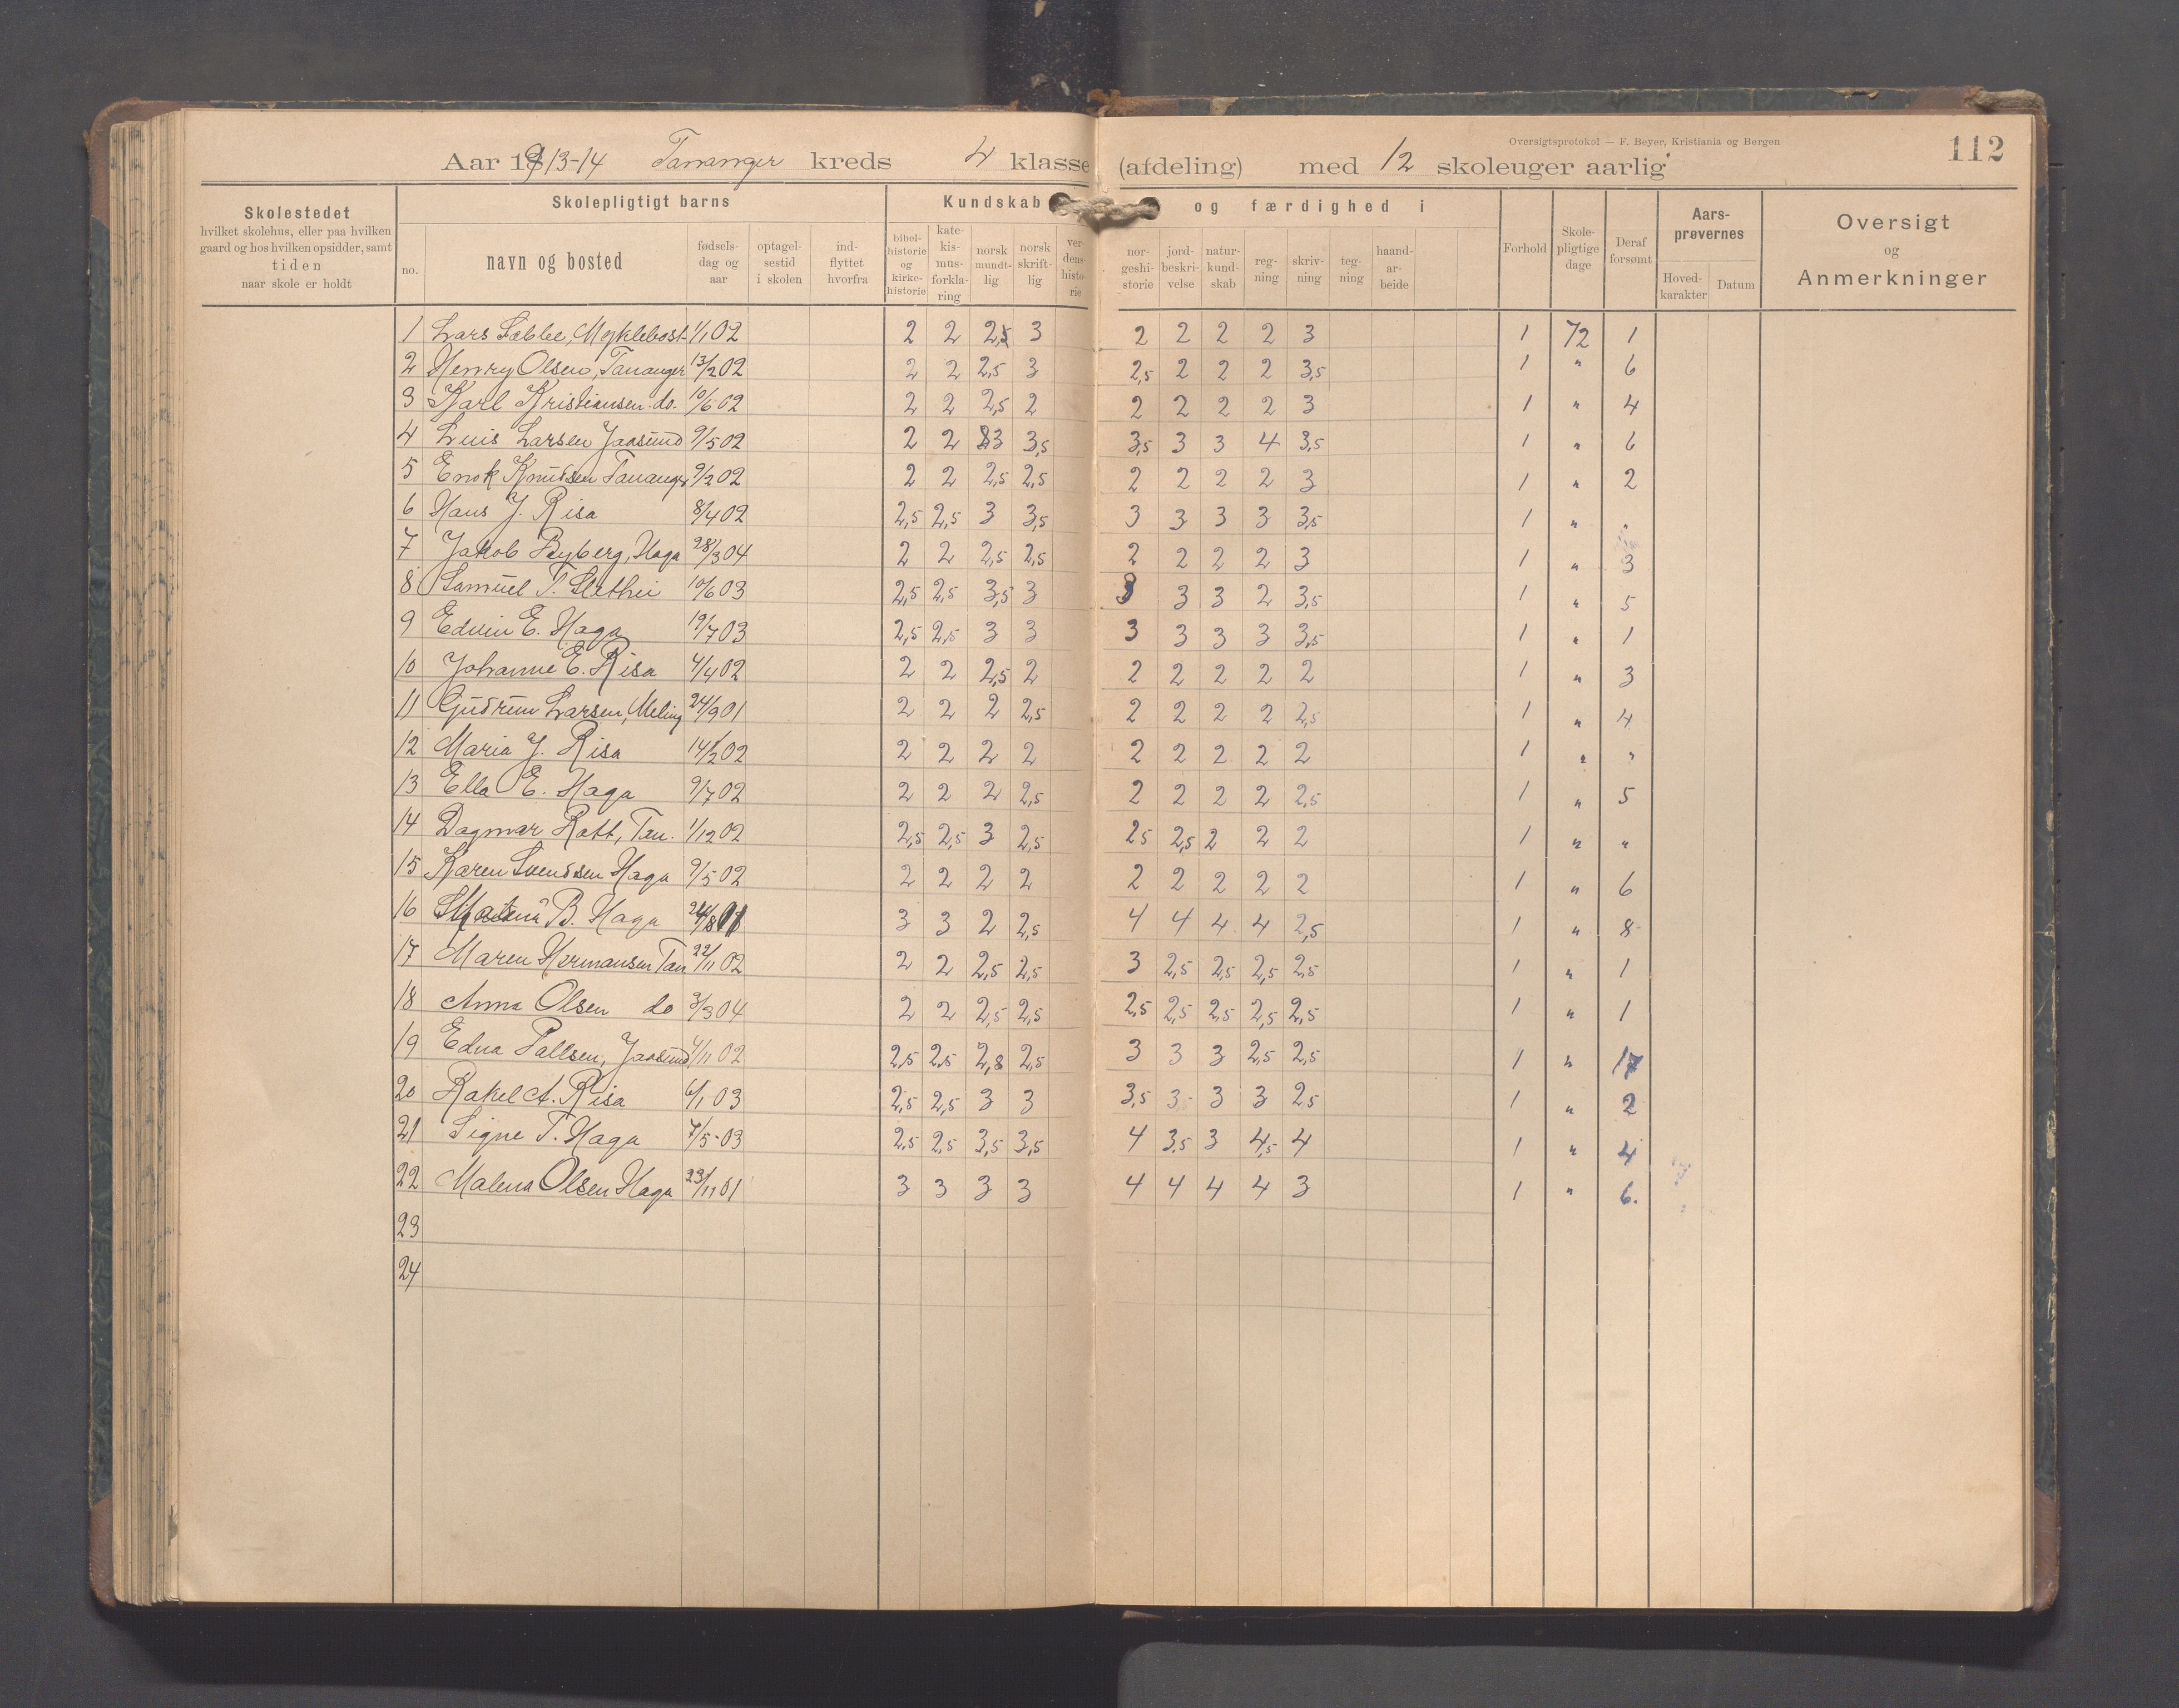 Oversigtsprotokol — F. Beyer, Kristiania og Bergen
112
Aar 1913-14 Tananger kreds 4 klasse (afdeling) med 12 skoleuger aarlig
Skolestedet
hvilket skolehus, eller paa hvilken
gaard og hos hvilken opsidder, samt
tiden
naar skole er holdt
Skolepligtigt barns
no.
navn og bosted
fødsels-
dag og
aar
optagel-
sestid
i skolen
ind-
flyttet
hvorfra
Kundskab og færdighed i
bibel-
historie
og
kirke-
historie
kate-
kis-
mus-
forkla-
ring
norsk
mundt-
lig
norsk
skrift-
lig
ver-
dens-
histo-
rie
nor-
geshi-
storie
jord-
beskri-
velse
natur-
kund-
skab
reg-
ning
skriv-
ning
teg-
ning
haand-
ar-
beide
Forhold
Skole-
pligtige
dage
Deraf
forsømt
Aars-
prøvernes
Hoved-
karakter
Datum
Oversigt
og
Anmerkninger
1 Lars Sæbbe, Myklebost 1/1 02 2 2 2,5 3 2 2 2 2 3 1 72 1
2 Henry Olsen, Tananger 13/2 02 2 2 2,5 3 2,5 2 2 2 3,5 1 " 6
3 Karl Kristiansen do. 10/6 02 2 2 2,5 2 2 2 2 2 3 1 " 4
4 Luis Larsen Jaasund 9/5 02 2 2 3 3,5 3,5 3 3 4 3,5 1 " 6
5 Enok Knudsen Tananger 9/2 02 2 2 2,5 2,5 2 2 2 2 3 1 " 2
6 Hans J. Risa 8/4 02 2,5 2,5 3 3,5 3 3 3 3 3,5 1 " "
7 Jakob Byberg, Haga 28/3 04 2 2 2,5 2,5 2 2 2 2 3 1 " 3
8 Samuel T. Slethei 10/6 03 2,5 2,5 3,5 3 3 3 3 2 3,5 1 " 5
9 Edvin E. Haga 19/7 03 2,5 2,5 3 3 3 3 3 3 3,5 1 " 1
10 Johanne E. Risa 4/4 02 2 2 2,5 2 2 2 2 2 2 1 " 3
11 Gudrun Larsen, Meling 24/9 01 2 2 2 2,5 2 2 2 2 2,5 1 " 4
12 Maria J. Risa 14/2 02 2 2 2 2 2 2 2 2 2 1 " "
13 Ella E. Haga 9/7 02 2 2 2 2,5 2 2 2 2 2,5 1 " 5
14 Dagmar Rott, Tan. 1/12 02 2,5 2,5 3 2,5 2,5 2,5 2 2 2 1 " "
15 Karen Svendsen Haga 9/5 02 2 2 2 2 2 2 2 2 2 1 " 6
16 B. Haga 24/8 01 3 3 2 2,5 4 4 4 4 2,5 1 " 8
17 Maren Hermansen Tan 22/11 02 2 2 2,5 2,5 3 2,5 2,5 2,5 2,5 1 " 1
18 Anna Olsen do 3/3 04 2 2 2,5 2,5 2,5 2,5 2,5 2,5 2,5 1 " 1
19 Edna Pallsen, Jaasund 4/11 02 2,5 2,5 2,8 2,5 3 3 3 2,5 2,5 1 " 17
20 Rakel A. Risa 6/1 03 2,5 2,5 3 3 3,5 3 3 3 2,5 1 " 2
21 Signe T. Haga 7/5-03 2,5 2,5 3,5 3,5 4 3,5 3 4,5 4 1 " 4
22 Malena Olsen Haga 23/11 01 3 3 3 3 4 4 4 4 3 1 " 6.
23
24